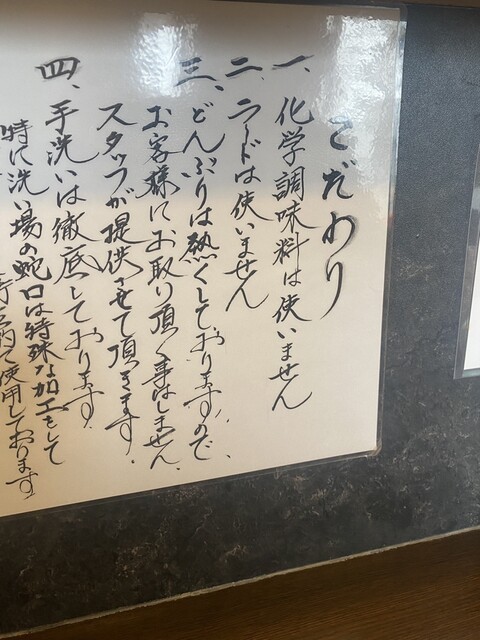 こだわり
一、化学調味料は使いません
二、ラードは使いません
三、どんぶりは熱くしておりますので
お客様にお取り頂く事はしません、
スタッフが提供させて頂きます。
四、手洗いは徹底しております。
特に洗い場の蛇口は特殊な加工をして
使用しております。